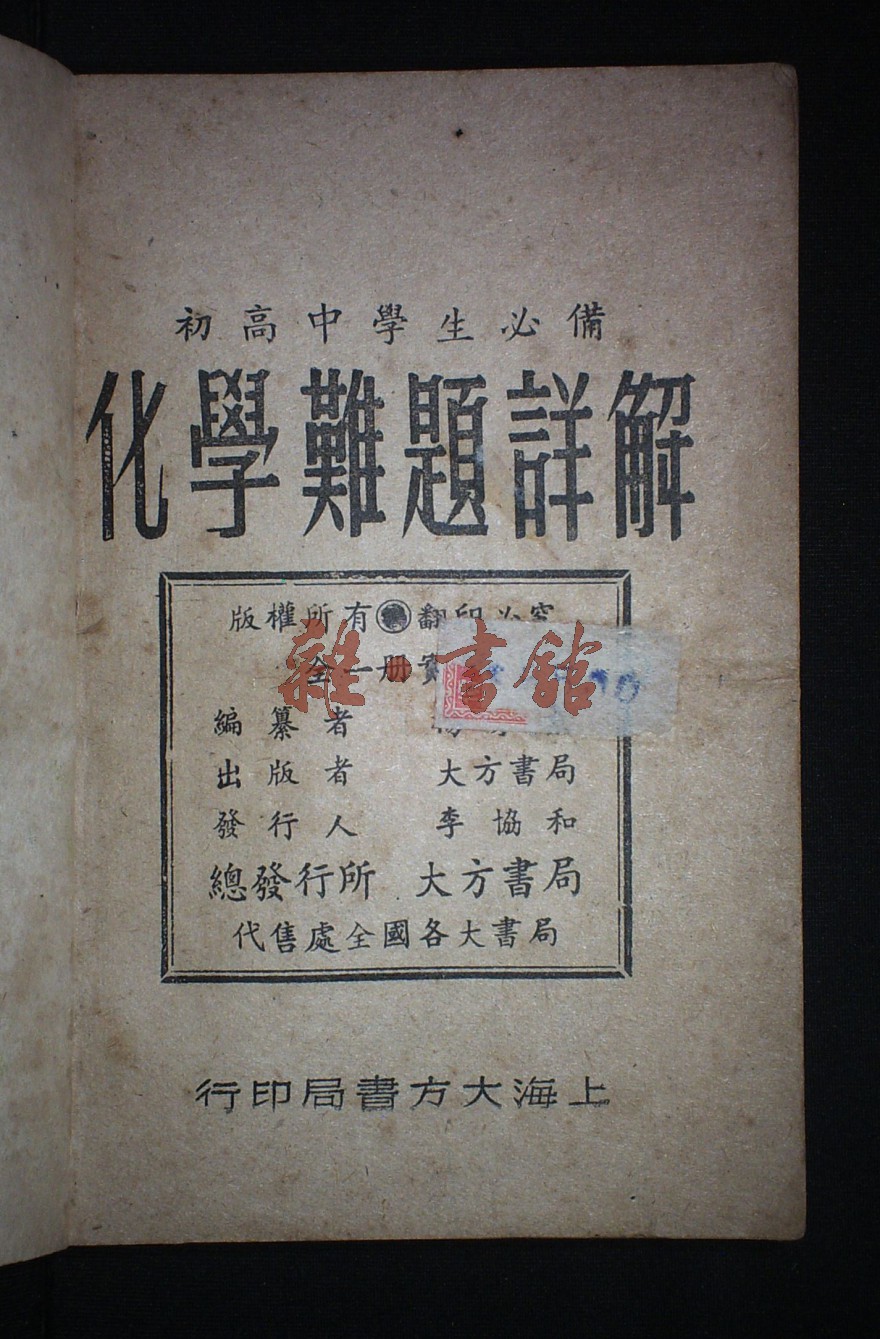 初高中學生必備
化學難題詳解
版權所有 翻印必究
全一册實
編纂者
出版者 大方書局
發行人 李協和
總發行所 大方書局
代售處全國各大書局
行印局書方大海上
雜書館